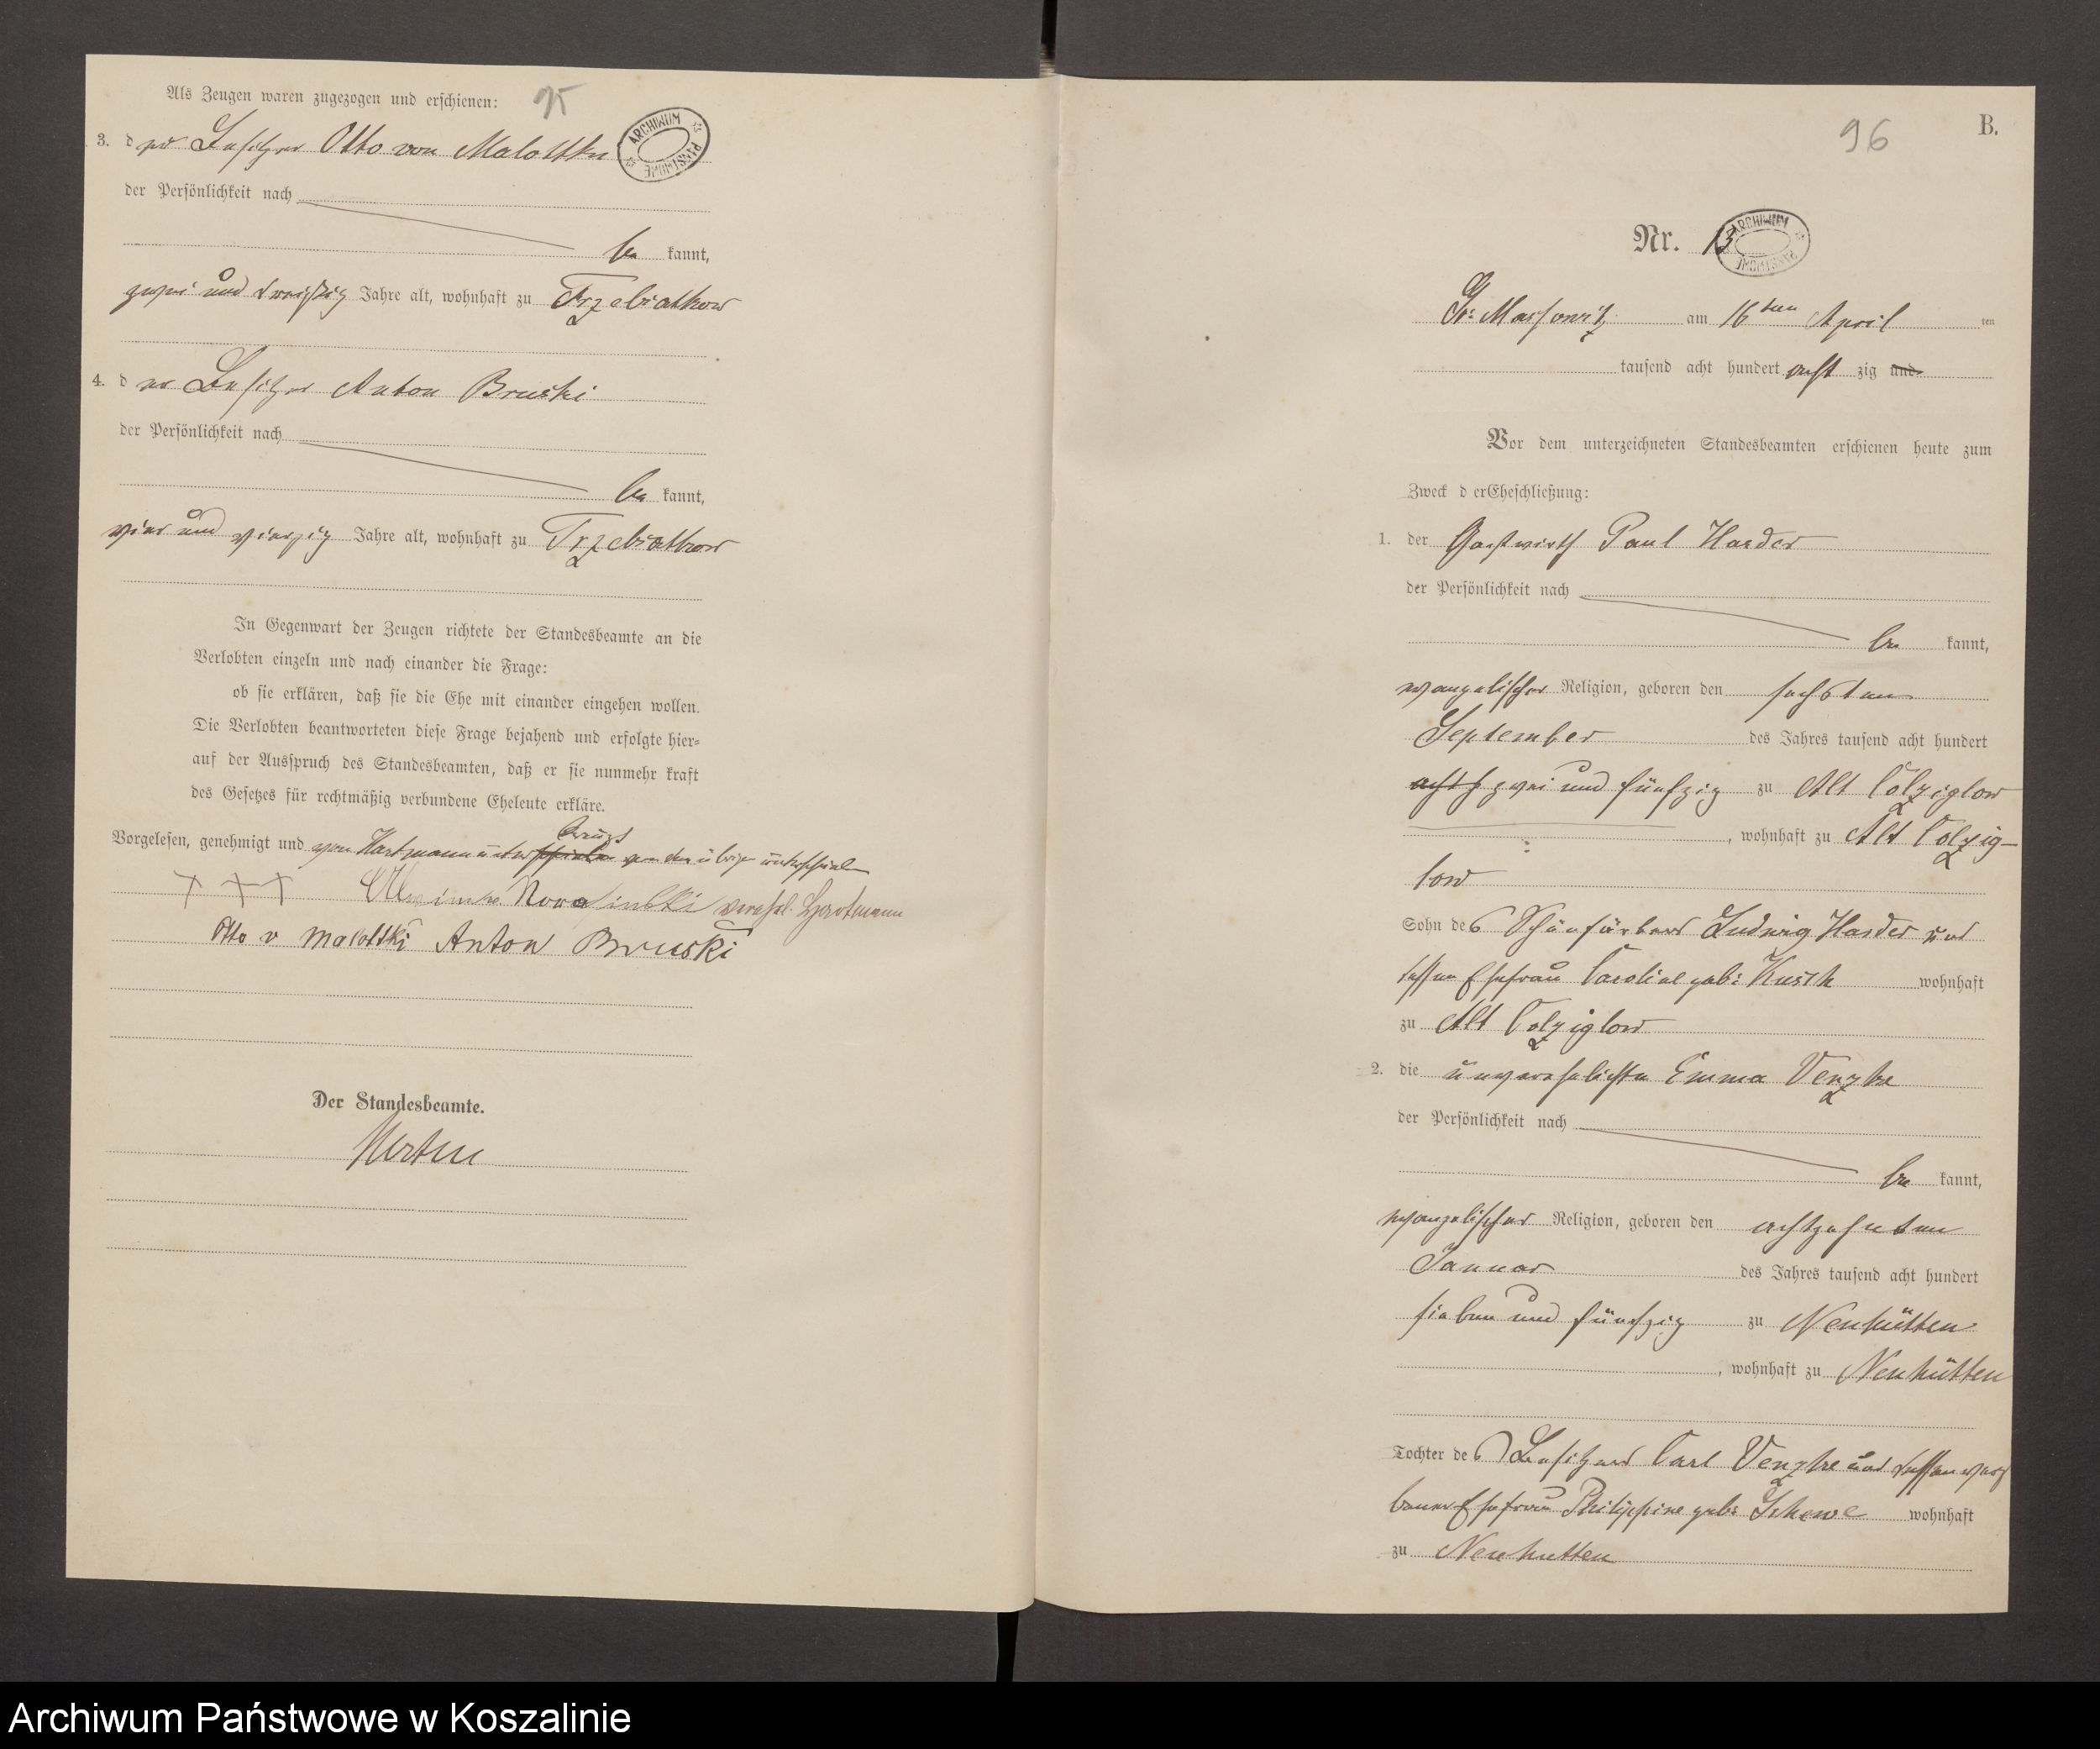 Als Zeugen waren zugezogen und erschienen:
95
ARCHIWUM PAŃSTWOWE
3. d er Besitzer Otto von Malottki
der Persönlichkeit nach
be kannt,
zwei und dreißig Jahre alt, wohnhaft zu Trzebiatkow
4. d er Besitzer Anton Bruski
der Persönlichkeit nach
be kannt,
vier und vierzig Jahre alt, wohnhaft zu Trzebiatkow
In Gegenwart der Zeugen richtete der Standesbeamte an die
Verlobten einzeln und nach einander die Frage:
ob sie erklären, daß sie die Ehe mit einander eingehen wollen.
Die Verlobten beantworteten diese Frage bejahend und erfolgte hier-
auf der Ausspruch des Standesbeamten, daß er sie nunmehr kraft
des Gesetzes für rechtmäßig verbundene Eheleute erkläre.
Vorgelesen, genehmigt und von Hartmann unter von den übrigen unterschrieben
+ + + Nowalinski verehel. Hartmann
Otto v Malottki Anton Bruski
Der Standesbeamte.
96
B.
Nr. 13
ARCHIWUM PAŃSTWOWE
Gr. Massowitz am 16ten April ten
tausend acht hundert acht zig und
Vor dem unterzeichneten Standesbeamten erschienen heute zum
Zweck der Eheschließung:
1. der Gastwirth Paul Harder
der Persönlichkeit nach
be kannt,
evangelischer Religion, geboren den sechsten
September des Jahres tausend acht hundert
zwei und fünfzig zu Alt Colziglow
, wohnhaft zu Alt Colzig-
low
Sohn des Schönfärbers Ludwig Harder und
dessen Ehefrau Caroline geb: Kusch wohnhaft
zu Alt Colziglow
2. die unverehelichte Emma Venzke
der Persönlichkeit nach
be kannt,
evangelischer Religion, geboren den achtzehnten
Januar des Jahres tausend acht hundert
sieben und fünfzig zu Neuhütten
, wohnhaft zu Neuhütten
Tochter des Besitzers Carl Venzke und dessen verstor
benen Ehefrau Philippine geb: Schewe wohnhaft
zu Neuhutten
Archiwum Państwowe w Koszalinie